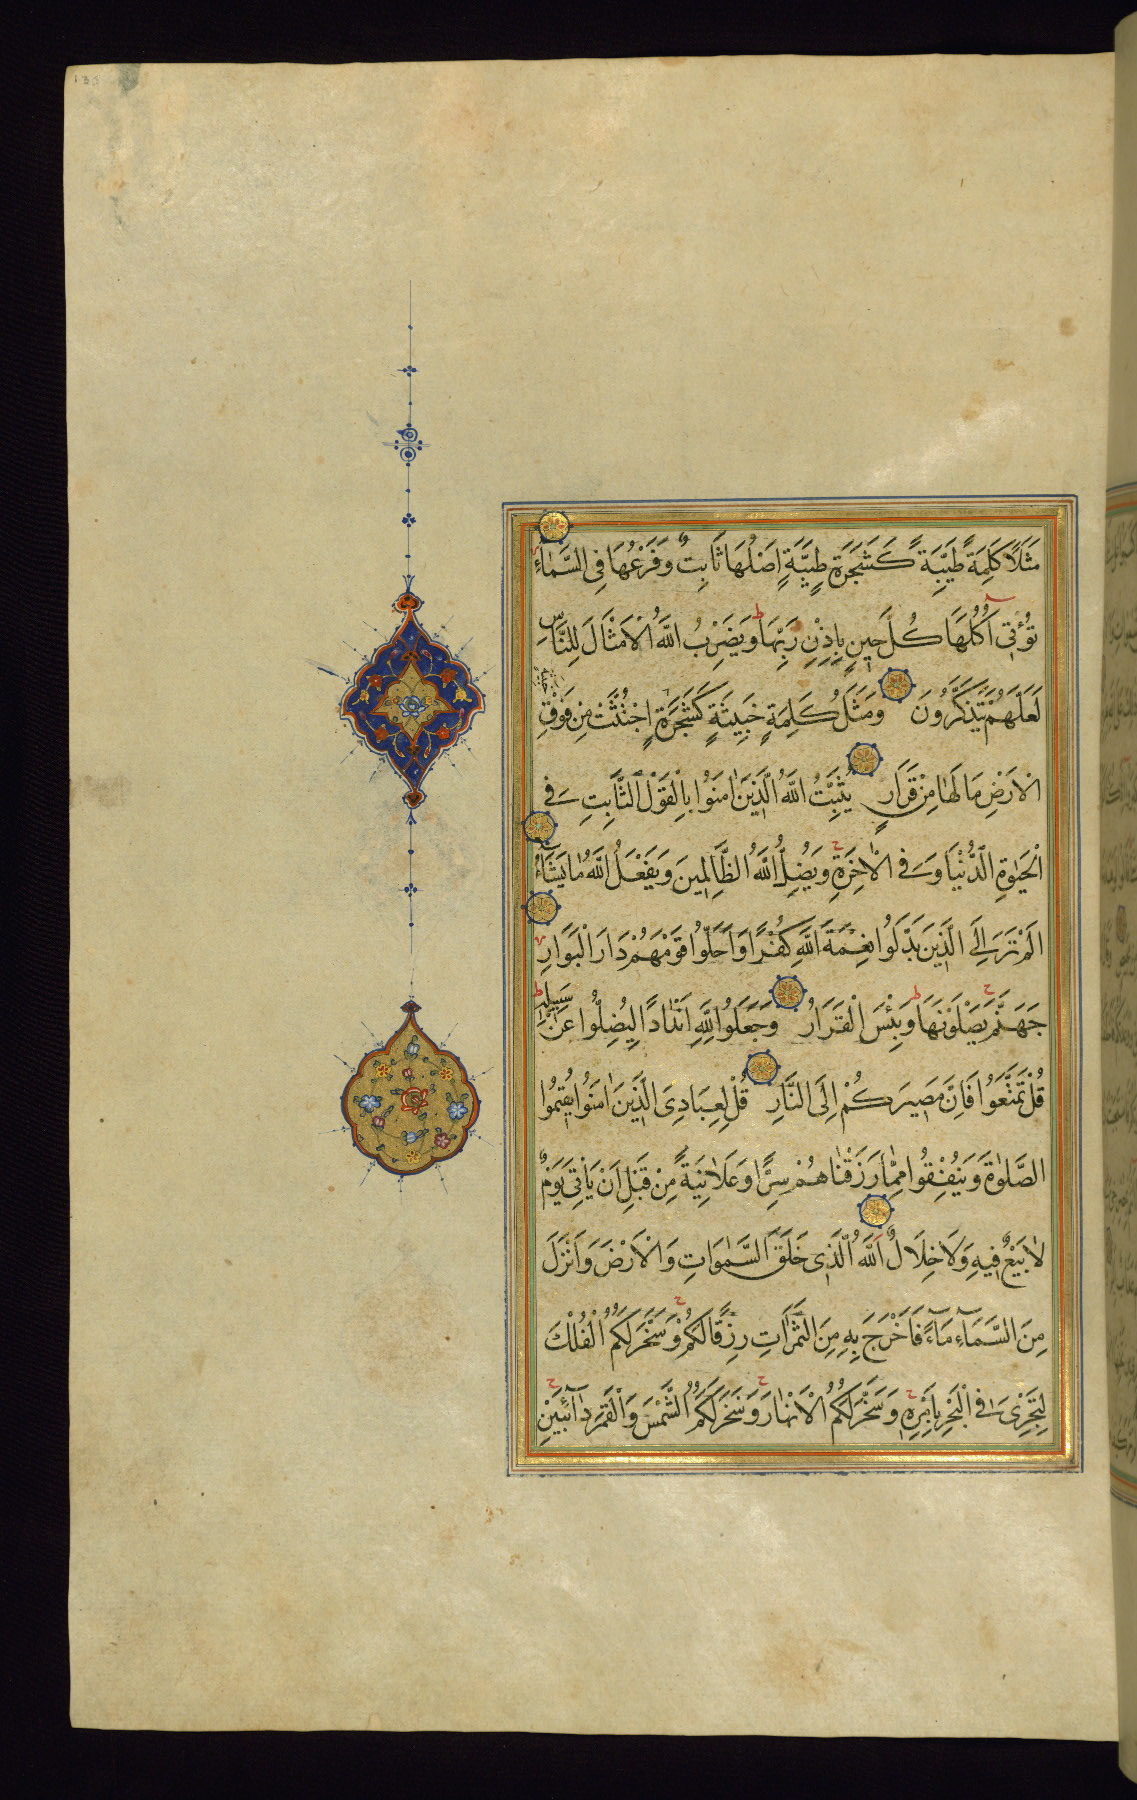 مَثَلًا كَلِمَةً طَيِّبَةً كَشَجَرَةٍ طَيِّبَةٍ اَصْلُهَا ثَابِتٌ وَفَرْعُهَا فِى السَّمَاءِ
تُؤْتِى اُكُلَهَا كُلَّ حِينٍ بِاِذْنِ رَبِّهَا وَيَضْرِبُ اللَّهُ الْاَمْثَالَ لِلنَّاسِ
لَعَلَّهُمْ يَتَذَكَّرُونَ وَمَثَلُ كَلِمَةٍ خَبِيثَةٍ كَشَجَرَةٍ اجْتُثَّتْ مِن فَوْقِ
الْاَرْضِ مَا لَهَا مِنْ قَرَارٍ يُثَبِّتُ اللَّهُ الَّذِينَ اٰمَنُوا بِالْقَوْلِ الثَّابِتِ فِى
الْحَيٰوةِ الدُّنْيَا وَفِى الْاٰخِرَةِ وَيُضِلُّ اللَّهُ الظَّالِمِينَ وَيَفْعَلُ اللَّهُ مَا يَشَاءُ
اَلَمْ تَرَ اِلَى الَّذِينَ بَدَّلُوا نِعْمَةَ اللَّهِ كُفْرًا وَاَحَلُّوا قَوْمَهُمْ دَارَ الْبَوَارِ
جَهَنَّمَ يَصْلَوْنَهَا وَبِئْسَ الْقَرَارُ وَجَعَلُوا لِلَّهِ اَنْدَادًا لِيُضِلُّوا عَنْ سَبِيلِهِ
قُلْ تَمَتَّعُوا فَاِنَّ مَصِيرَكُمْ اِلَى النَّارِ قُلْ لِعِبَادِىَ الَّذِينَ اٰمَنُوا يُقِيمُوا
الصَّلٰوةَ وَيُنْفِقُوا مِمَّا رَزَقْنَاهُمْ سِرًّا وَعَلَانِيَةً مِنْ قَبْلِ اَنْ يَاْتِىَ يَوْمٌ
لَا بَيْعٌ فِيهِ وَلَا خِلَالٌ اَللَّهُ الَّذِى خَلَقَ السَّمٰوَاتِ وَالْاَرْضَ وَاَنْزَلَ
مِنَ السَّمَآءِ مَآءً فَاَخْرَجَ بِهِ مِنَ الثَّمَرَاتِ رِزْقًا لَكُمْ وَسَخَّرَ لَكُمُ الْفُلْكَ
لِتَجْرِىَ فِى الْبَحْرِ بِاَمْرِهِ وَسَخَّرَ لَكُمُ الْاَنْهَارَ وَسَخَّرَ لَكُمُ الشَّمْسَ وَالْقَمَرَ دَآئِبَيْنِ